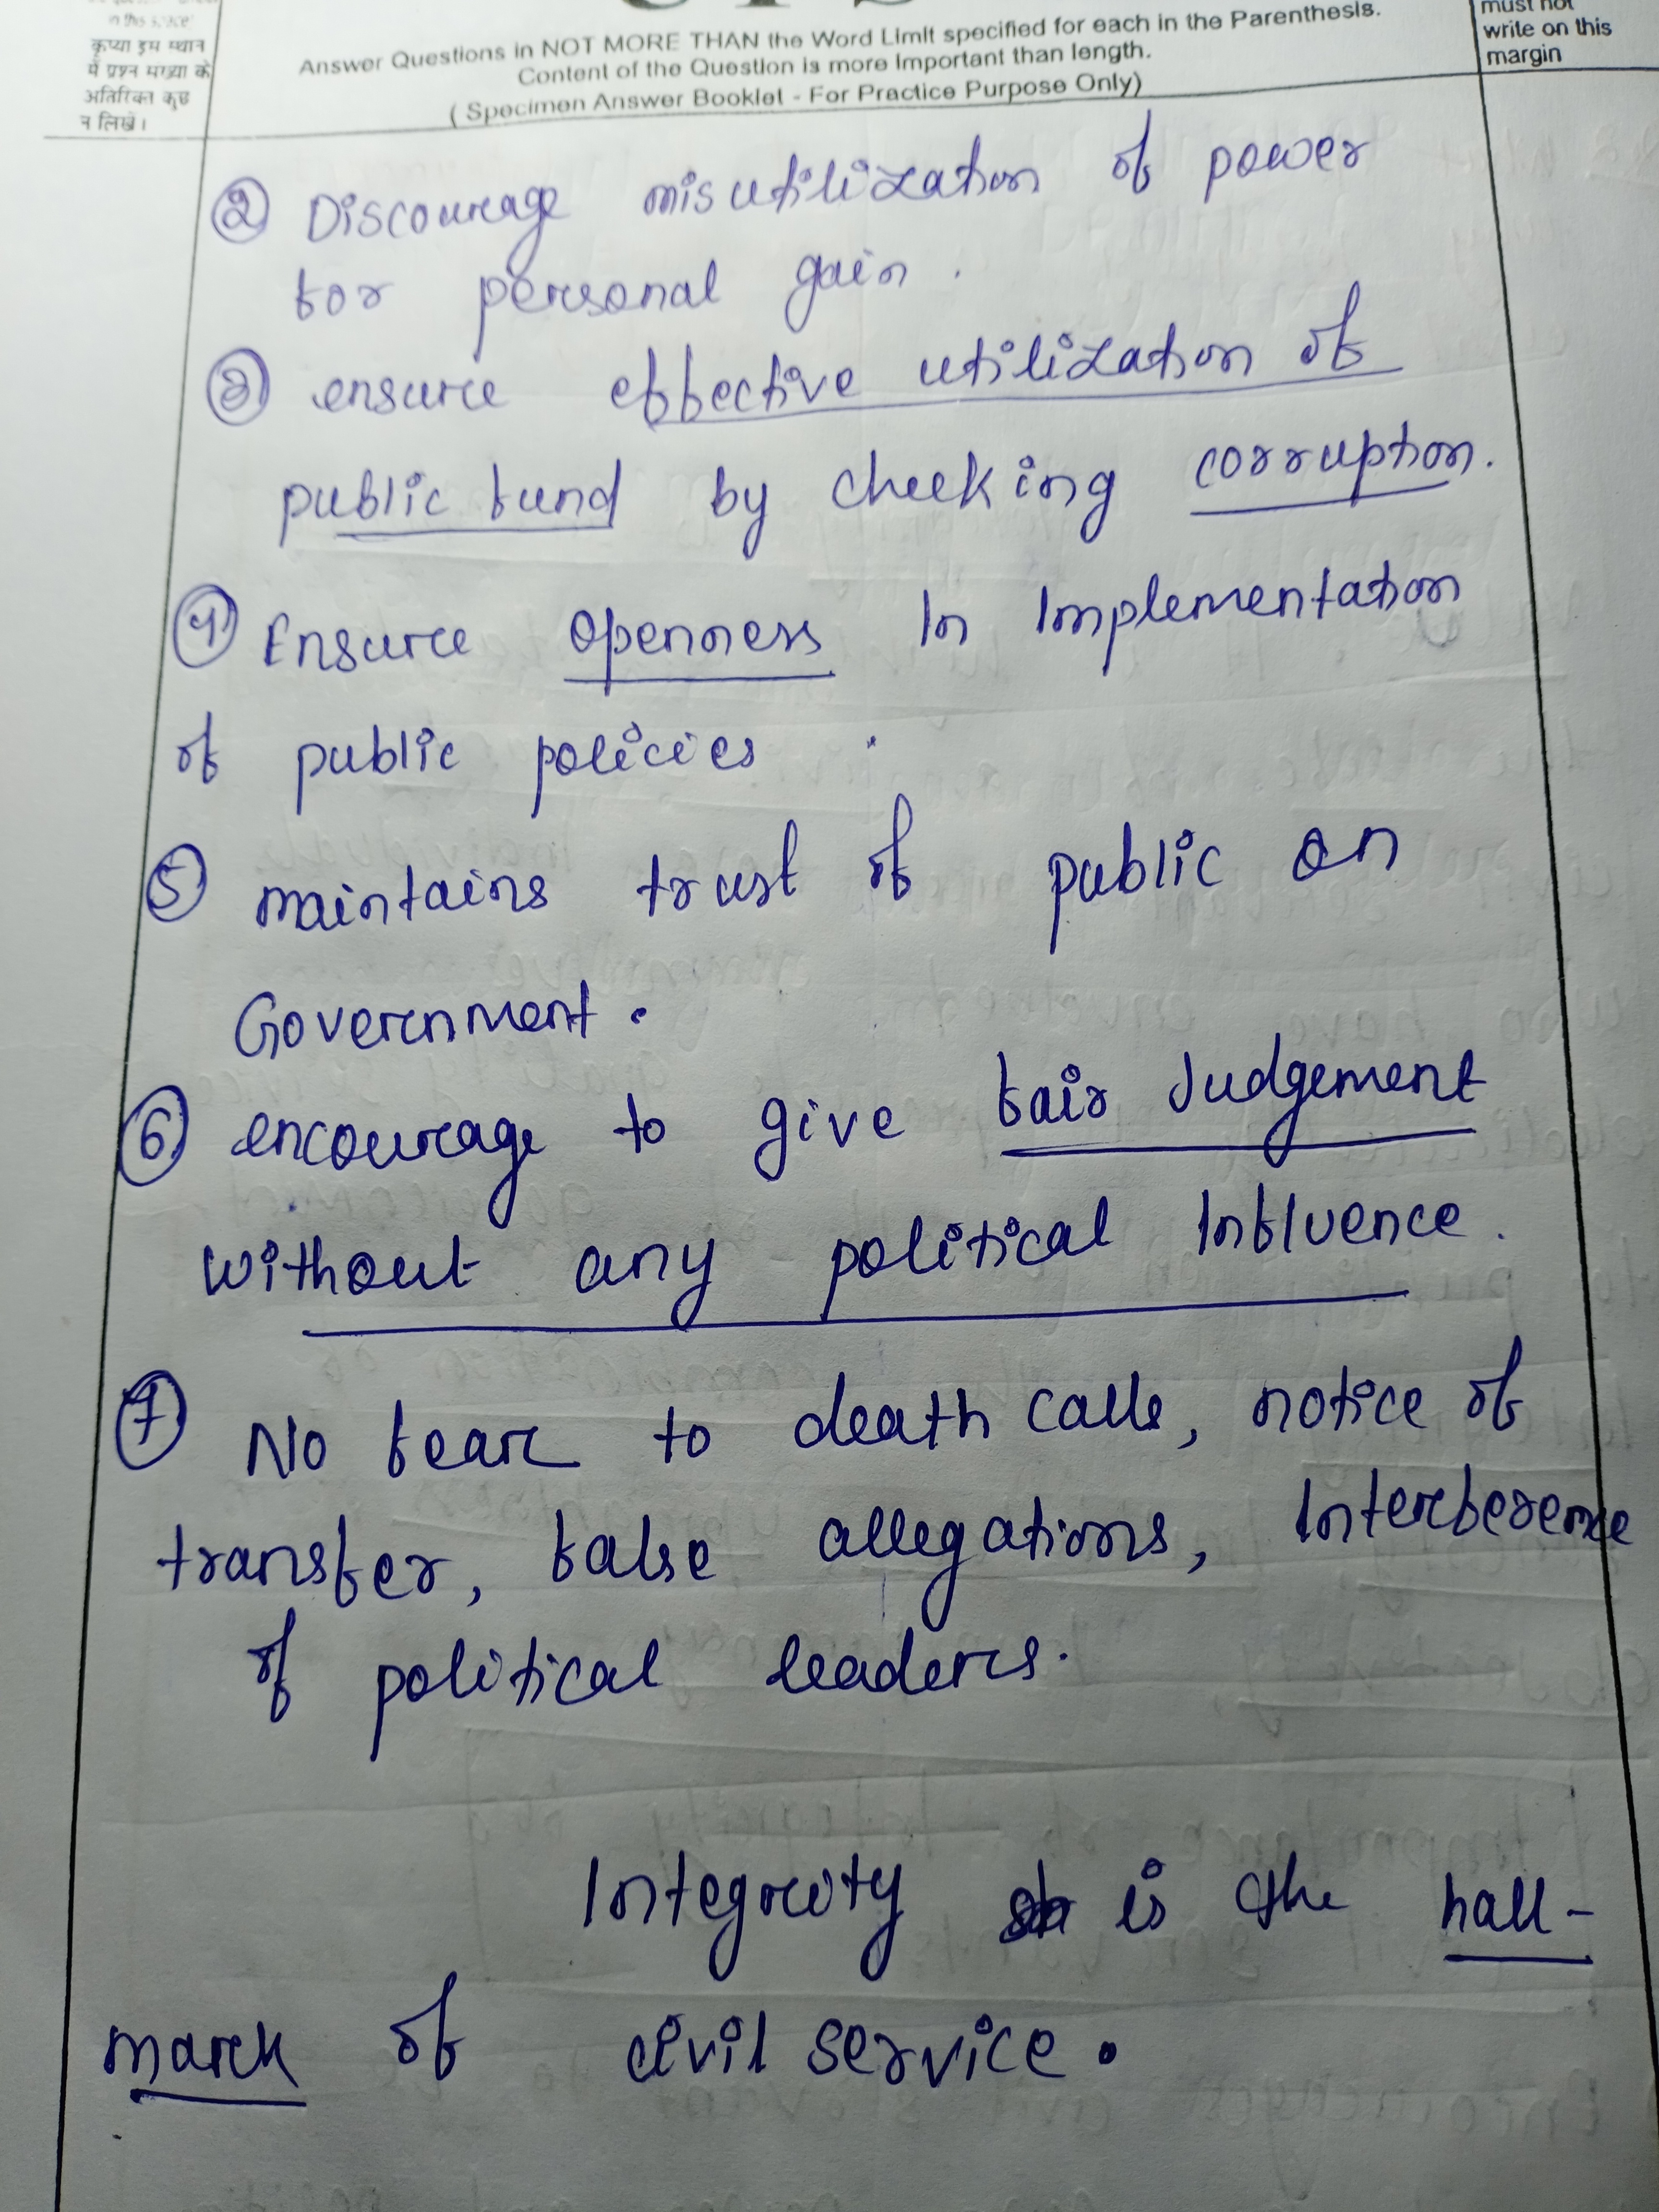 in this space
कृप्या इस स्थान
में प्रश्न संख्या के
अतिरिक्त कुछ
न लिखें।
Answer Questions in NOT MORE THAN the Word Limit specified for each in the Parenthesis.
Content of the Question is more Important than length.
( Specimen Answer Booklet - For Practice Purpose Only)
must not
write on this
margin
② Discourage misutilization of power
for personal gain.
③ ensure effective utilization of
public fund by checking corruption.
④ Ensure openness In Implementation
of public policies.
⑤ maintains trust of public on
Government.
⑥ encourage to give fair Judgement
without any political Influence.
⑦ No fear to death calls, notice of
transfer, false allegations, Interference
of political leaders.
Integrity is the hall-
mark of civil service.